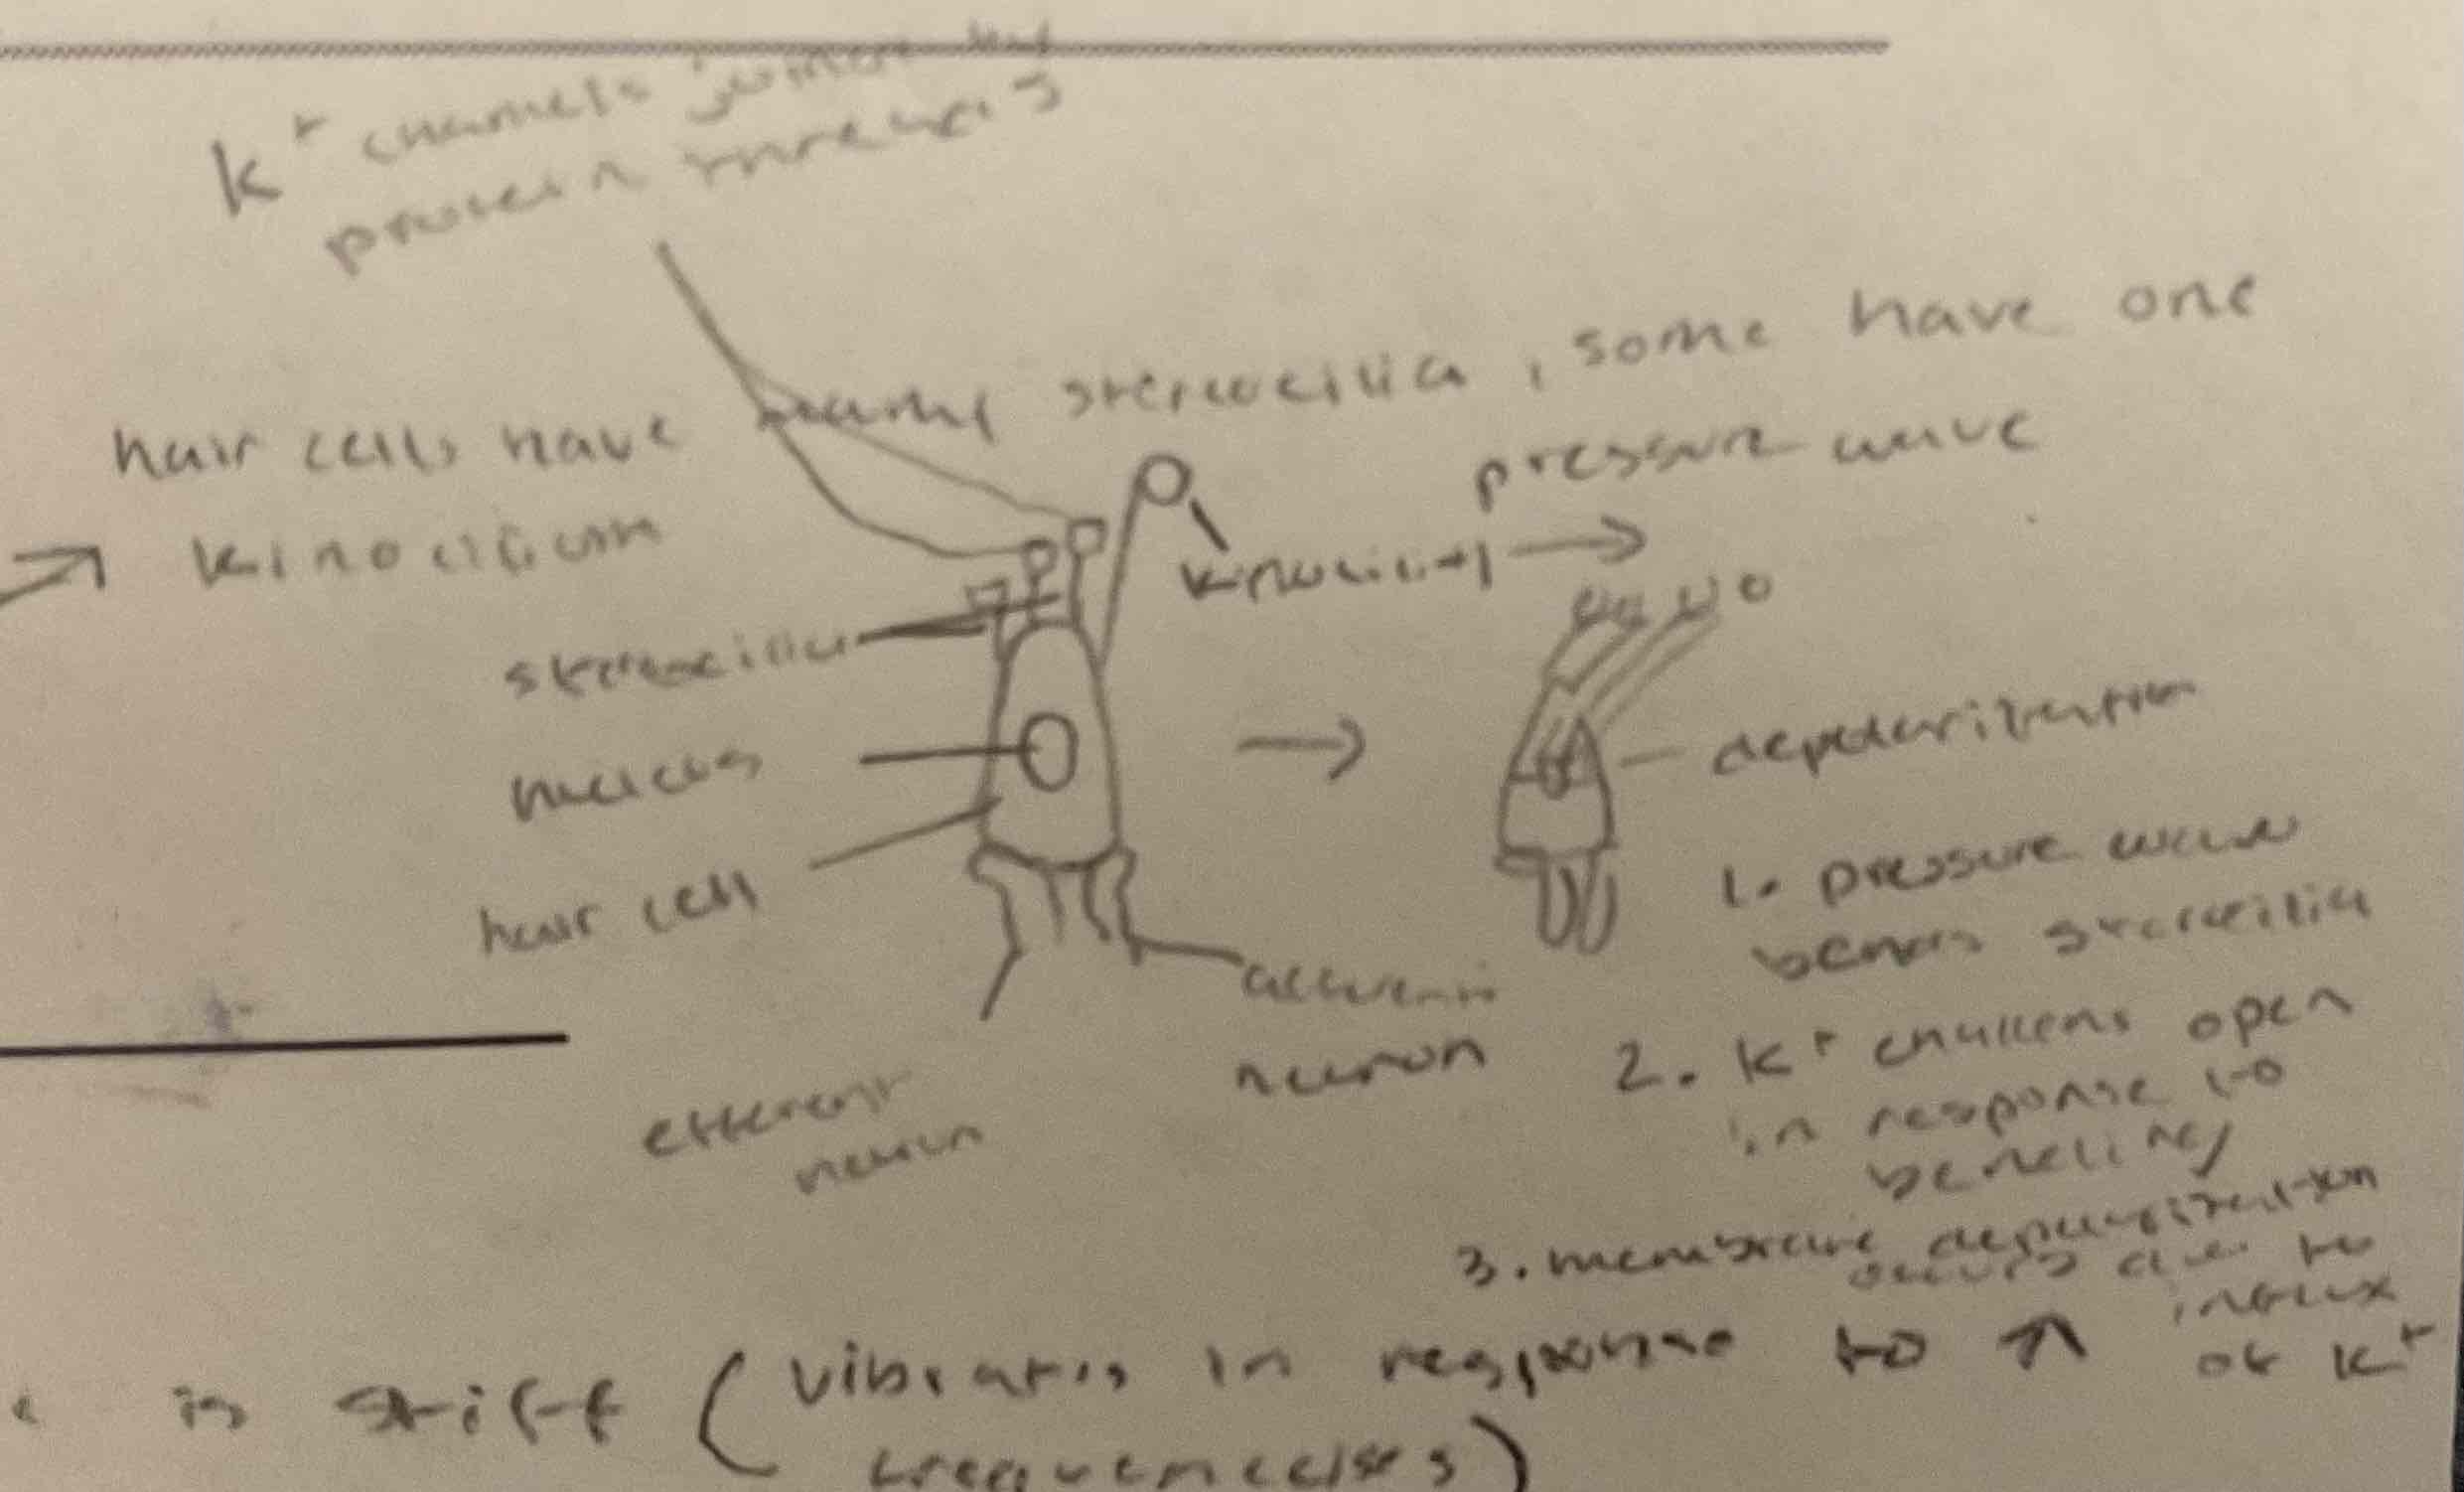 K+ channels joined by
protein threads
hair cells have many stereocilia, some have one
kinocilium
pressure wave
stereocilia
nucleus
hair cell
depolarization
efferent
neuron
neuron
1. pressure wave
bends stereocilia
2. K+ open
in response to
bending
3. membrane depolarization
occurs due to
influx
of K+
is stiff (vibrates in response to ↑